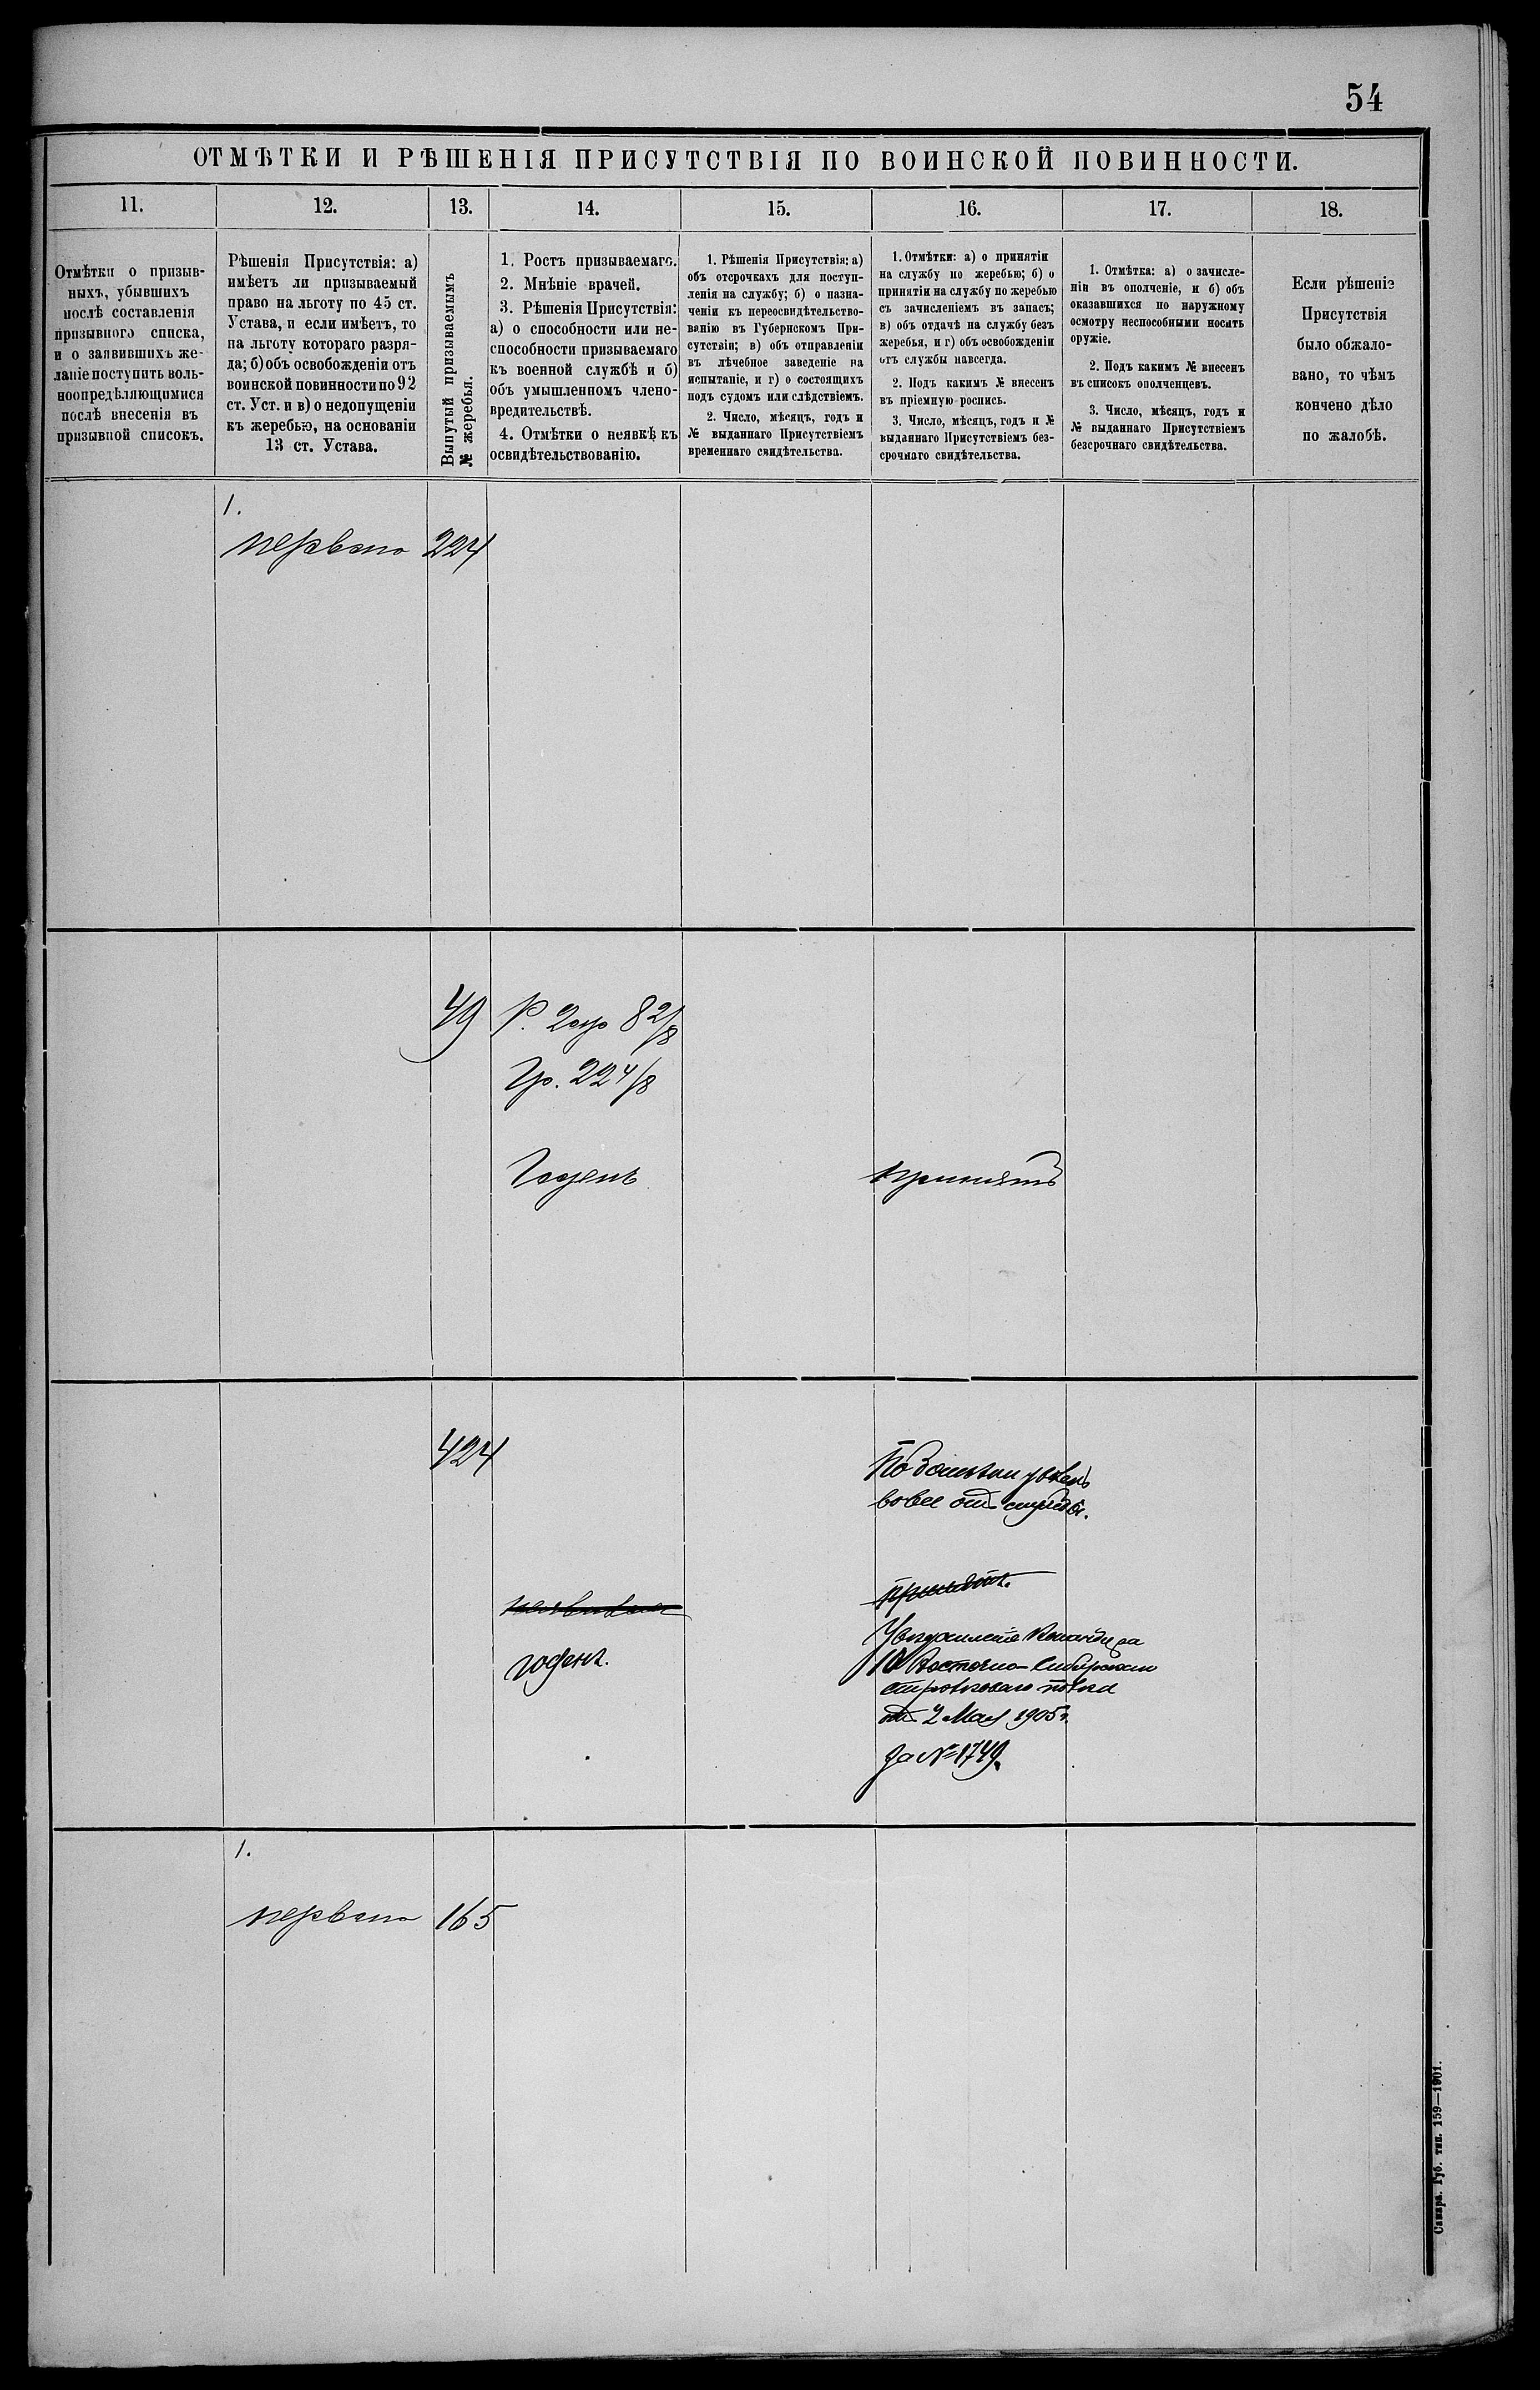 54
ОТМѢТКИ И РѢШЕНІЯ ПРИСУТСТВІЯ ПО ВОИНСКОЙ ПОВИННОСТИ.
11.
12.
13.
14.
15.
16.
17.
18.
Отмѣтки о призыв-
ныхъ, убывшихъ
послѣ составленія
призывного списка,
и о заявившихъ же-
ланіе поступить воль-
ноопредѣляющимися
послѣ внесенія въ
призывной списокъ.
Рѣшенія Присутствія: а)
имѣетъ ли призываемый
право на льготу по 45 ст.
Устава, и если имѣетъ, то
на льготу котораго разря-
да; б) объ освобожденіи отъ
воинской повинности по 92
ст. Уст. и в) о недопущеніи
къ жеребью, на основаніи
13 ст. Устава.
Вынутый призываемымъ
№ жеребья.
1. Ростъ призываемаго.
2. Мнѣніе врачей.
3. Рѣшенія Присутствія:
а) о способности или не-
способности призываемаго
къ военной службѣ и б)
объ умышленномъ члено-
вредительствѣ.
4. Отмѣтки о неявкѣ къ
освидѣтельствованію.
1. Рѣшенія Присутствія: а)
объ отсрочкахъ для поступ-
ленія на службу; б) о назна-
ченіи къ переосвидѣтельство-
ванію въ Губернскомъ При-
сутствіи; в) объ отправленіи
въ лѣчебное заведеніе на
испытаніе, и г) о состоящихъ
подъ судомъ или слѣдствіемъ.
2. Число, мѣсяцъ, годъ и
№ выданнаго Присутствіемъ
временнаго свидѣтельства.
1. Отмѣтки: а) о принятіи
на службу по жеребью; б) о
принятіи на службу по жеребью
съ зачисленіемъ въ запасъ;
в) объ отдачѣ на службу безъ
жеребья, и г) объ освобожденіи
отъ службы навсегда.
2. Подъ какимъ № внесенъ
въ пріемную роспись.
3. Число, мѣсяцъ, годъ и №
выданнаго Присутствіемъ без-
срочнаго свидѣтельства.
1. Отмѣтка: а) о зачисле-
ніи въ ополченіе, и б) объ
оказавшихся по наружному
осмотру неспособными носить
оружіе.
2. Подъ какимъ № внесенъ
въ списокъ ополченцевъ.
3. Число, мѣсяцъ, годъ и
№ выданнаго Присутствіемъ
безсрочнаго свидѣтельства.
Если рѣшеніе
Присутствія
было обжало-
вано, то чѣмъ
кончено дѣло
по жалобѣ.
1.
первого 224
49 Р. 2 ар 8 2/8
Гр. 22 4/8
Годенъ принятъ
424
По болѣзни уволенъ
вовсе отъ службы.
неявился
принятъ.
годенъ.
Увѣдомленіе Командира
10 Восточно-Сибирскаго
стрѣлковаго полка
отъ 2 Мая 1905 г.
за № 1749.
1.
первого 165
Самара. Губ. тип. 159—1901.